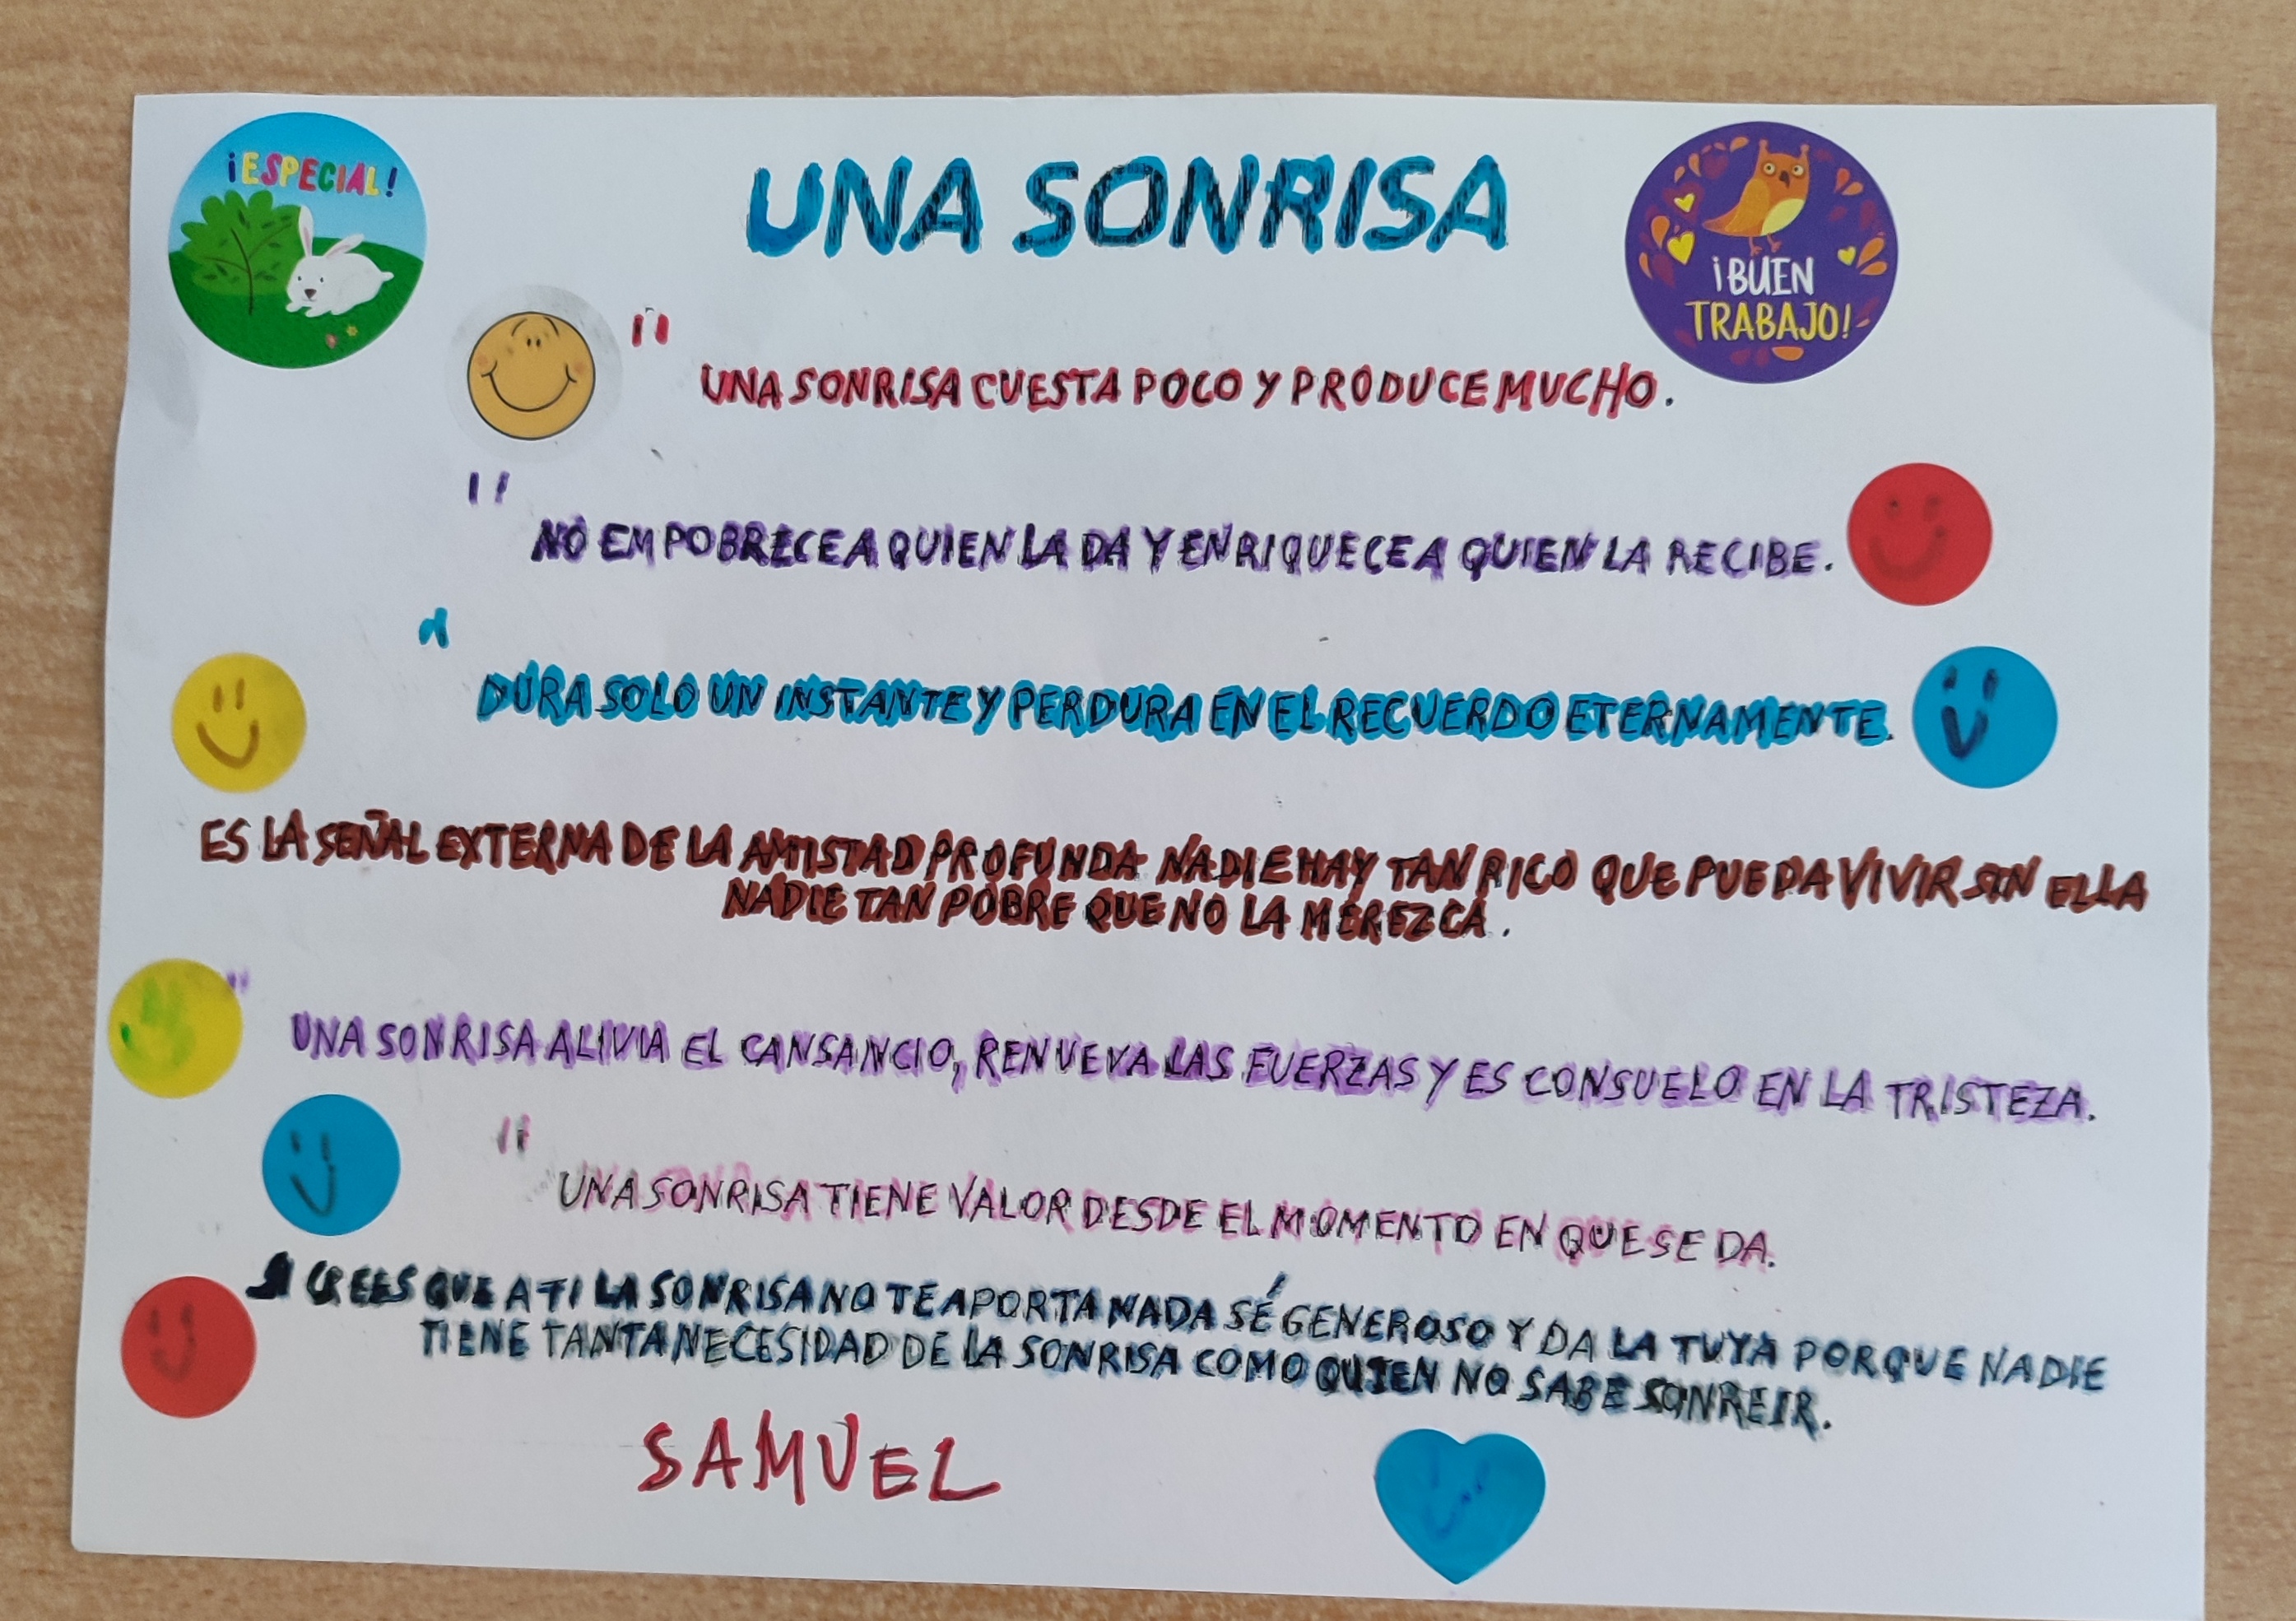 ¡ESPECIAL!
UNA SONRISA
¡BUEN
TRABAJO!
" UNA SONRISA CUESTA POCO Y PRODUCE MUCHO.
" NO EMPOBRECE A QUIEN LA DA Y ENRIQUECE A QUIEN LA RECIBE.
" DURA SOLO UN INSTANTE Y PERDURA EN EL RECUERDO ETERNAMENTE.
ES LA SEÑAL EXTERNA DE LA AMISTAD PROFUNDA NADIE HAY TAN RICO QUE PUEDA VIVIR SIN ELLA
NADIE TAN POBRE QUE NO LA MEREZCA.
" UNA SONRISA ALIVIA EL CANSANCIO, RENUEVA LAS FUERZAS Y ES CONSUELO EN LA TRISTEZA.
" UNA SONRISA TIENE VALOR DESDE EL MOMENTO EN QUE SE DA.
SI CREES QUE A TI LA SONRISA NO TE APORTA NADA SÉ GENEROSO Y DA LA TUYA PORQUE NADIE
TIENE TANTA NECESIDAD DE LA SONRISA COMO QUIEN NO SABE SONREIR.
SAMUEL